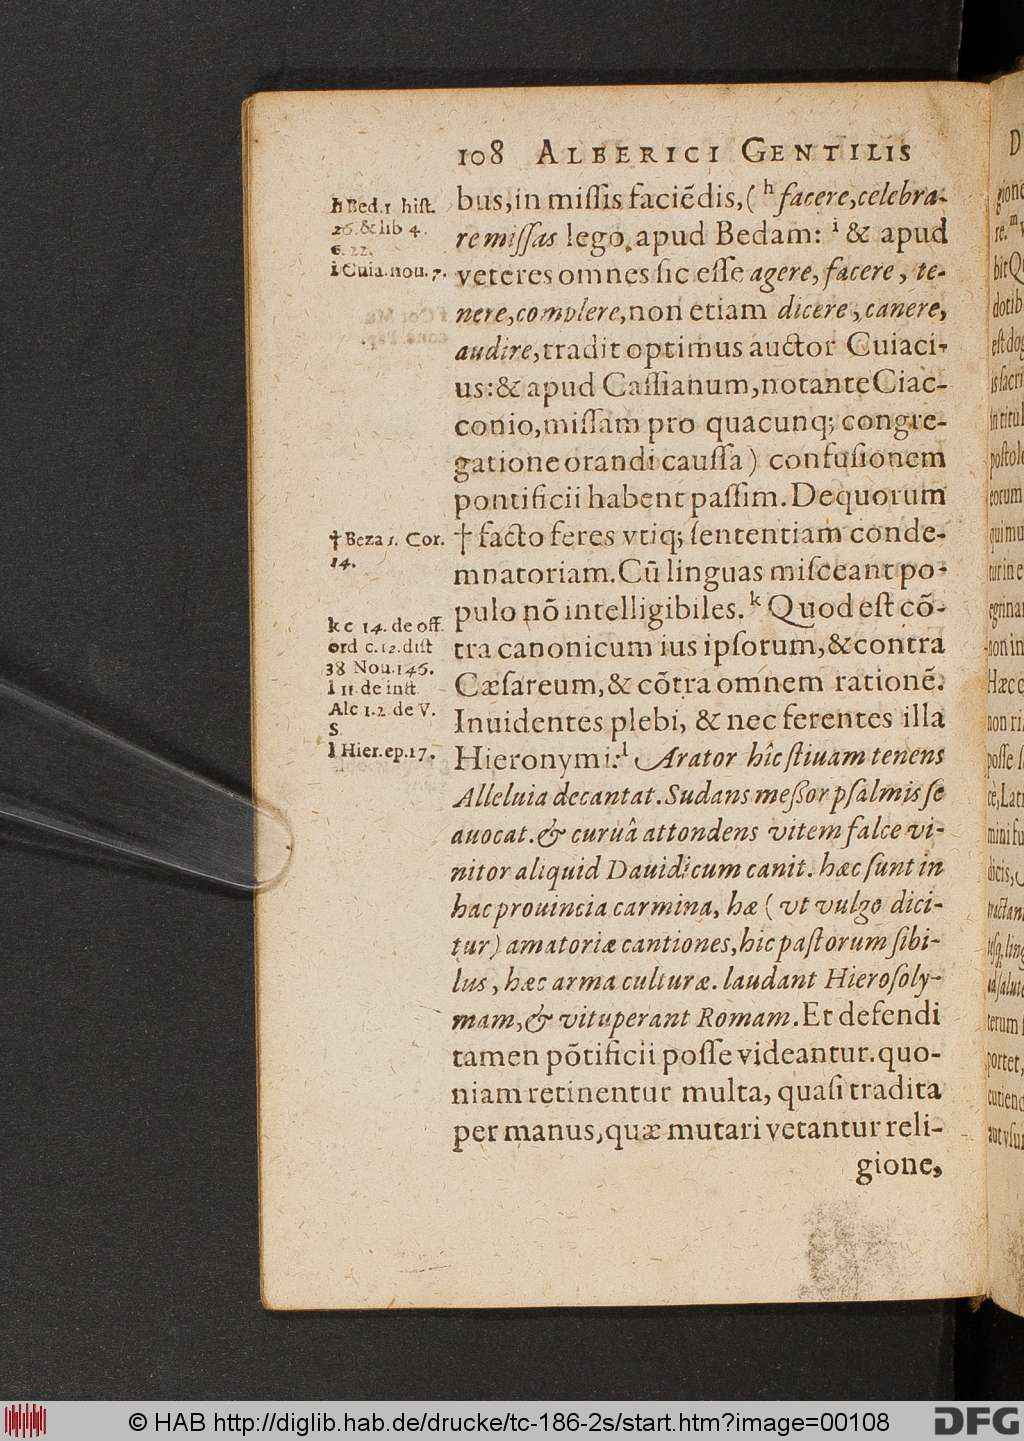 108 ALBERICI GENTILIS
bus, in miſſis faciẽdis, ( h facere, celebra-
re miſſas lego apud Bedam: i & apud
veteres omnes ſic eſſe agere, facere, te-
nere, complere, non etiam dicere, canere,
audire, tradit optimus auctor Cuiaci-
us: & apud Caſſianum, notante Ciac-
conio, miſſam pro quacunq; congre-
gatione orandi cauſſa) confuſionem
pontificii habent paſſim. De quorum
† facto feres vtiq; ſententiam conde-
mnatoriam. Cũ linguas miſceant po-
pulo nõ intelligibiles. k Quod eſt cõ-
tra canonicum ius ipſorum, & contra
Cæſareum, & cõtra omnem rationẽ.
Inuidentes plebi, & nec ferentes illa
Hieronymi: l Arator hîc ſtiuam tenens
Alleluia decantat. Sudans meſſor pſalmis ſe
auocat. & curuâ attondens vitem falce vi-
nitor aliquid Dauidicum canit. hæc ſunt in
hac prouincia carmina, hæ ( vt vulgo dici-
tur) amatoriæ cantiones, hic paſtorum ſibi-
lus, hæc arma culturæ. laudant Hieroſoly-
mam, & vituperant Romam. Et defendi
tamen põtificii poſſe videantur. quo-
niam retinentur multa, quaſi tradita
per manus, quæ mutari vetantur reli-
gione,
h Bed. 1 hiſt.
26. & lib 4.
c. 22.
i Cuia. nou. 7.
† Beza 1. Cor.
14.
k c 14. de off.
ord c. 12. diſt
38 Nou. 146.
l 11 de inſt
Alc l. 2. de V.
S
l Hier. ep. 17.
© HAB http://diglib.hab.de/drucke/tc-186-2s/start.htm?image=00108
DFG